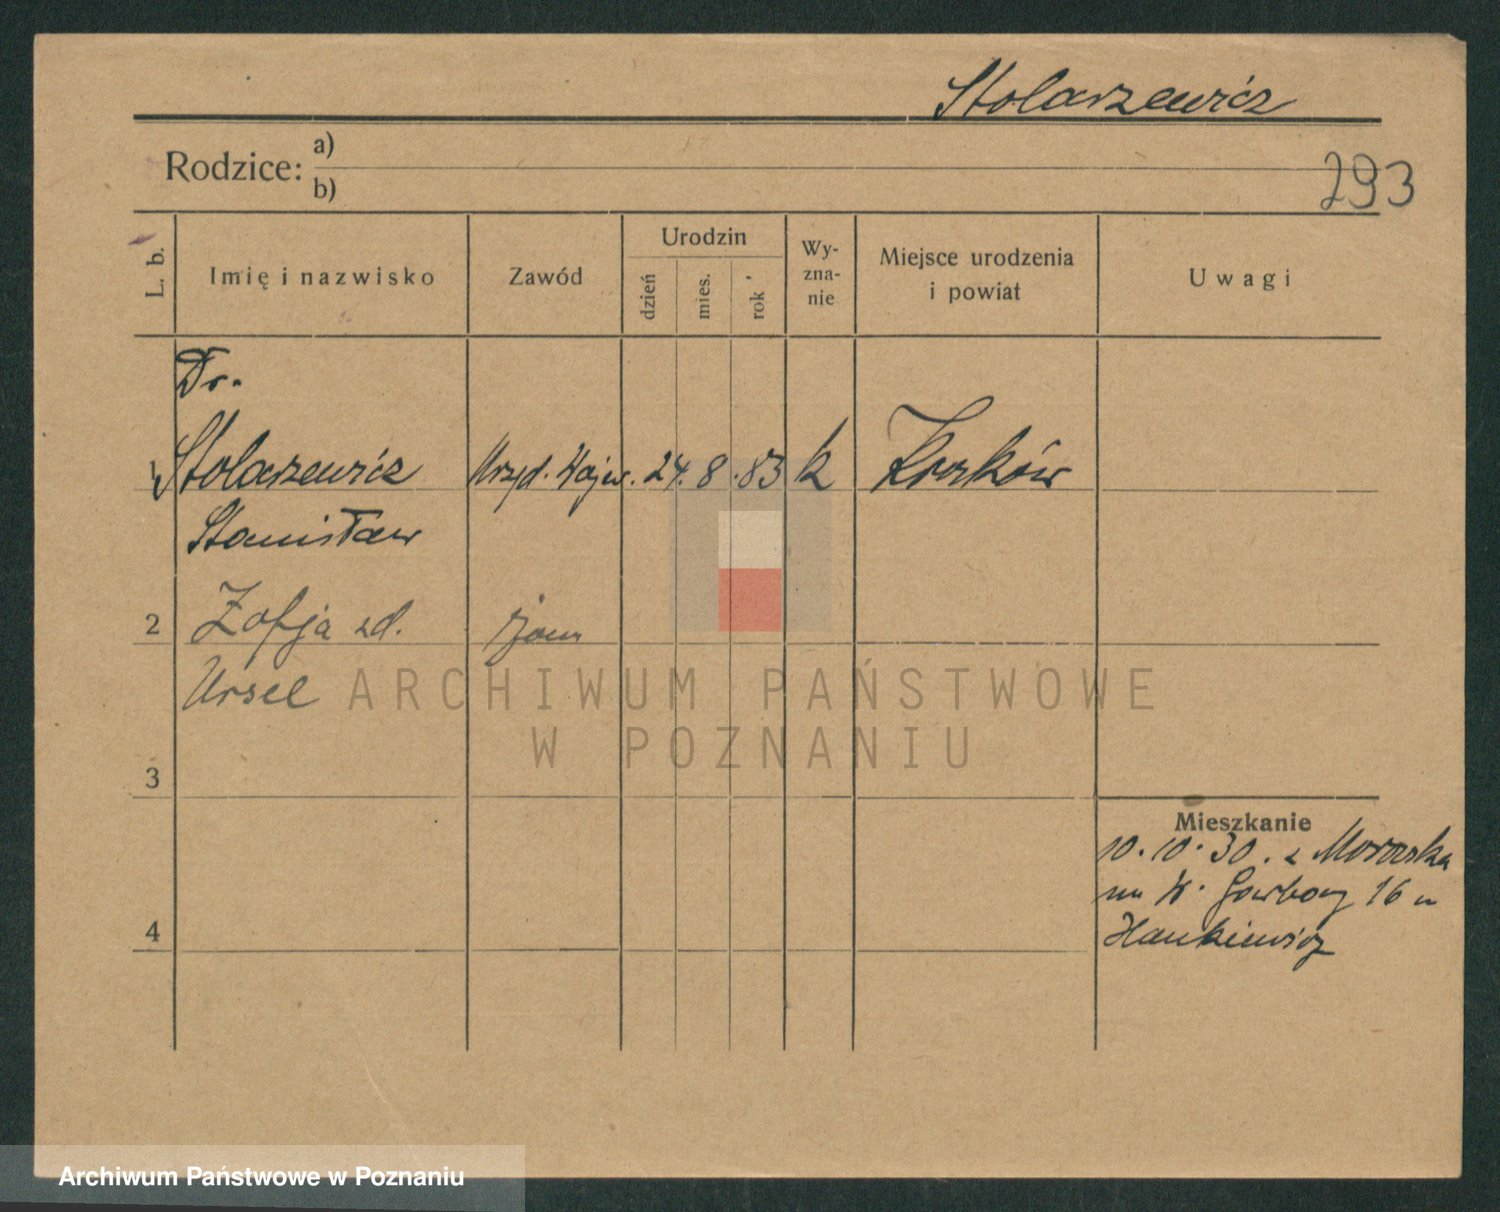 Stolarzewicz
Rodzice: a)
b)
293
L. b.
Imię i nazwisko
Zawód
Urodzin
dzień
mies.
rok
Wy-
zna-
nie
Miejsce urodzenia
i powiat
Uwagi
Dr.
1 Stolarzewicz Urzęd. Wojew. 24. 8. 83 k Kraków
Stanisław
2 Zofja zd. żona
Ursel
ARCHIWUM PAŃSTWOWE
W POZNANIU
3
Mieszkanie
10.10.30. z Morawska
na W. Garbary 16 u
4
Hankiewicz
Archiwum Państwowe w Poznaniu